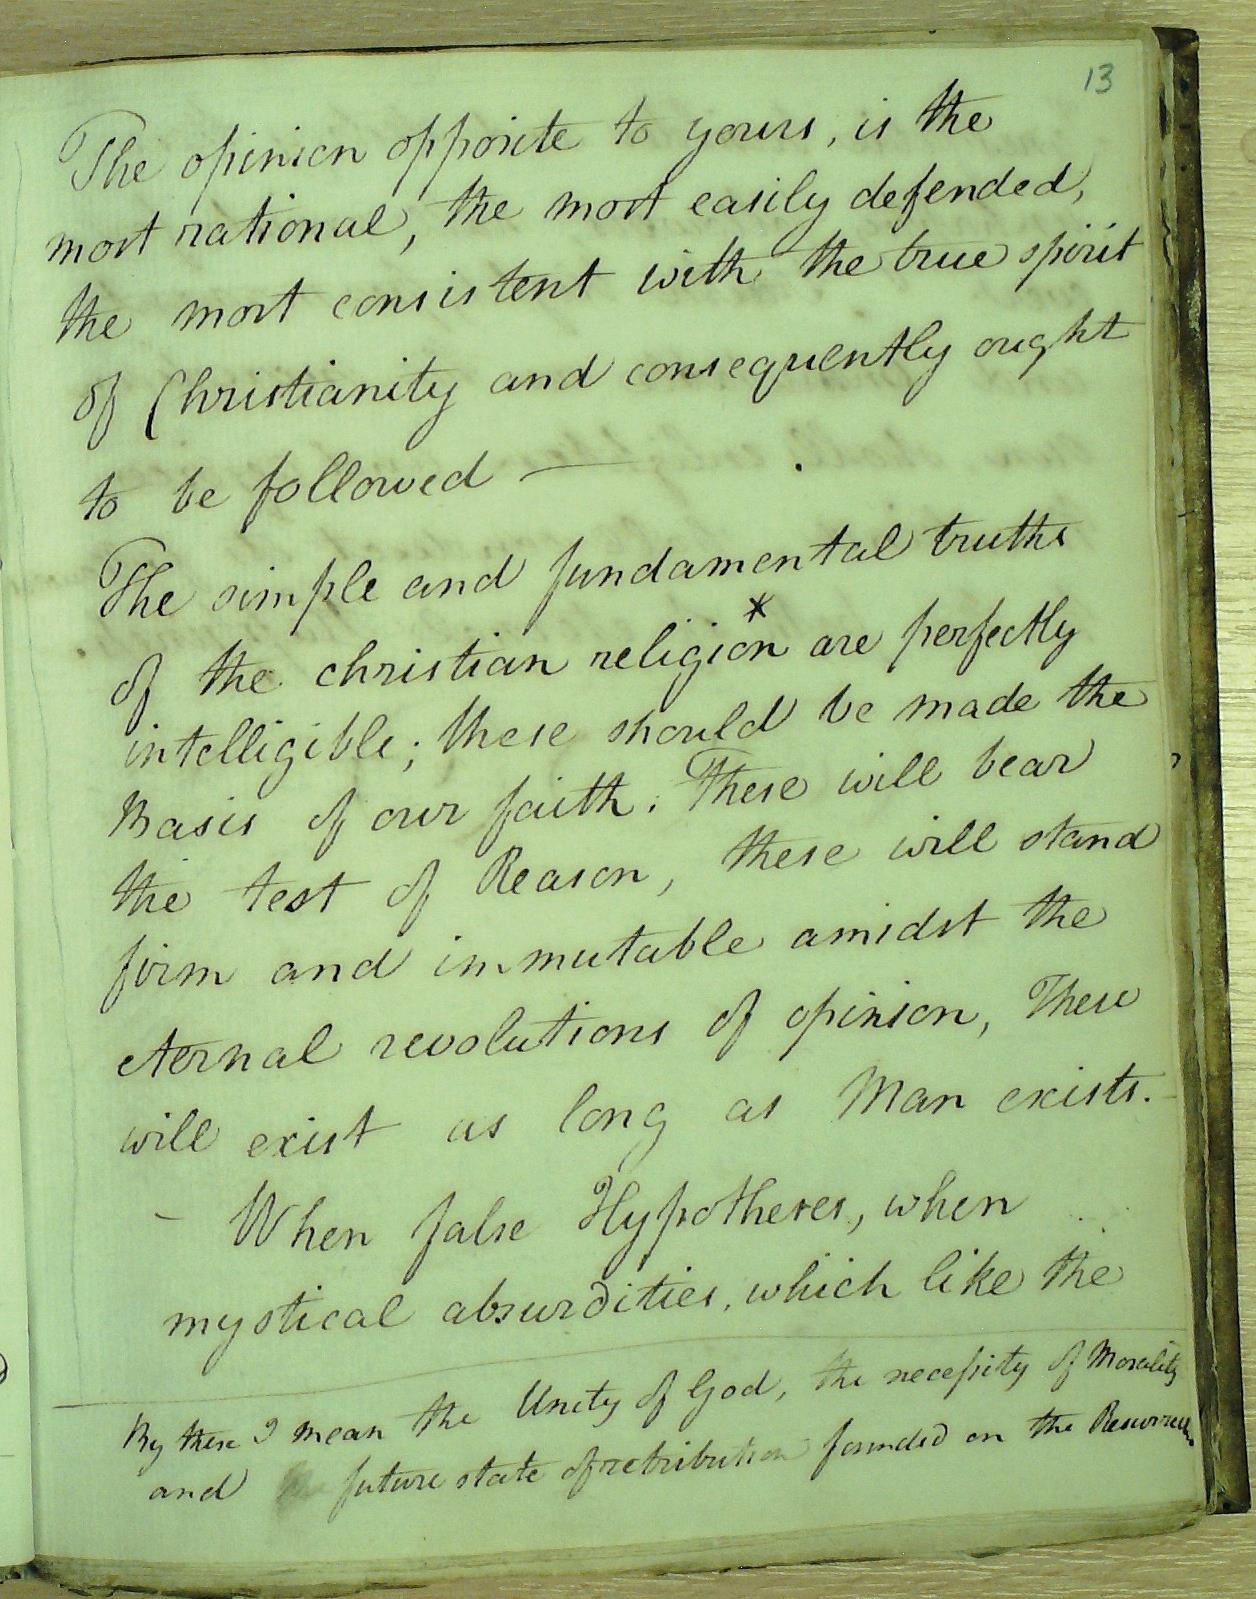 13
The opinion opposite to yours, is the
most rational, the most easily defended,
the most consistent with the true spirit
of Christianity and consequently ought
to be followed —
The simple and fundamental truths
of the christian religion* are perfectly
intelligible; these should be made the
Basis of our faith. These will bear
the test of Reason, these will stand
firm and immutable amidst the
eternal revolutions of opinion, These
will exist as long as Man exists.
– When false Hypotheses, when
mystical absurdities, which like the
By these I mean the Unity of God, the necessity of Morality
and future state of retribution founded on the